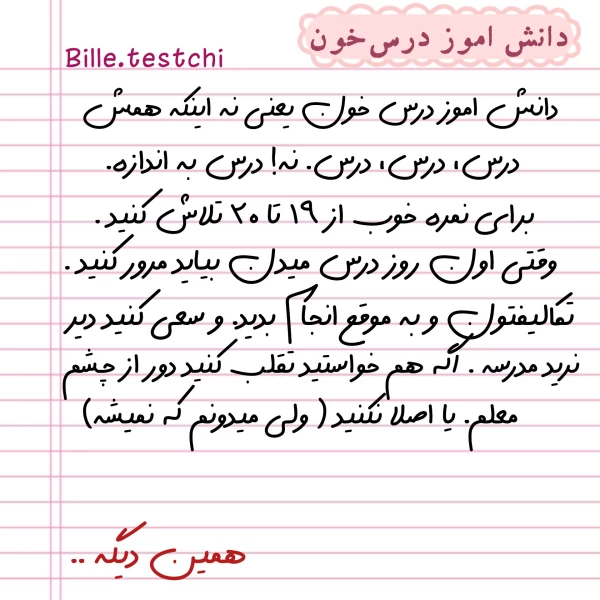 دانش اموز درس‌خون
Bille.testchi
دانش اموز درس خون یعنی نه اینکه همش
درس، درس، درس. نه! درس به اندازه.
برای نمره خوب از ۱۹ تا ۲۰ تلاش کنید.
وقتی اون روز درس میدن بیاید مرور کنید.
تکالیفتون و به موقع انجام بدید. و سعی کنید دیر
نرید مدرسه . اگه هم خواستید تقلب کنید دور از چشم
معلم. یا اصلا نکنید ( ولی میدونم که نمیشه)
همین دیگه ..